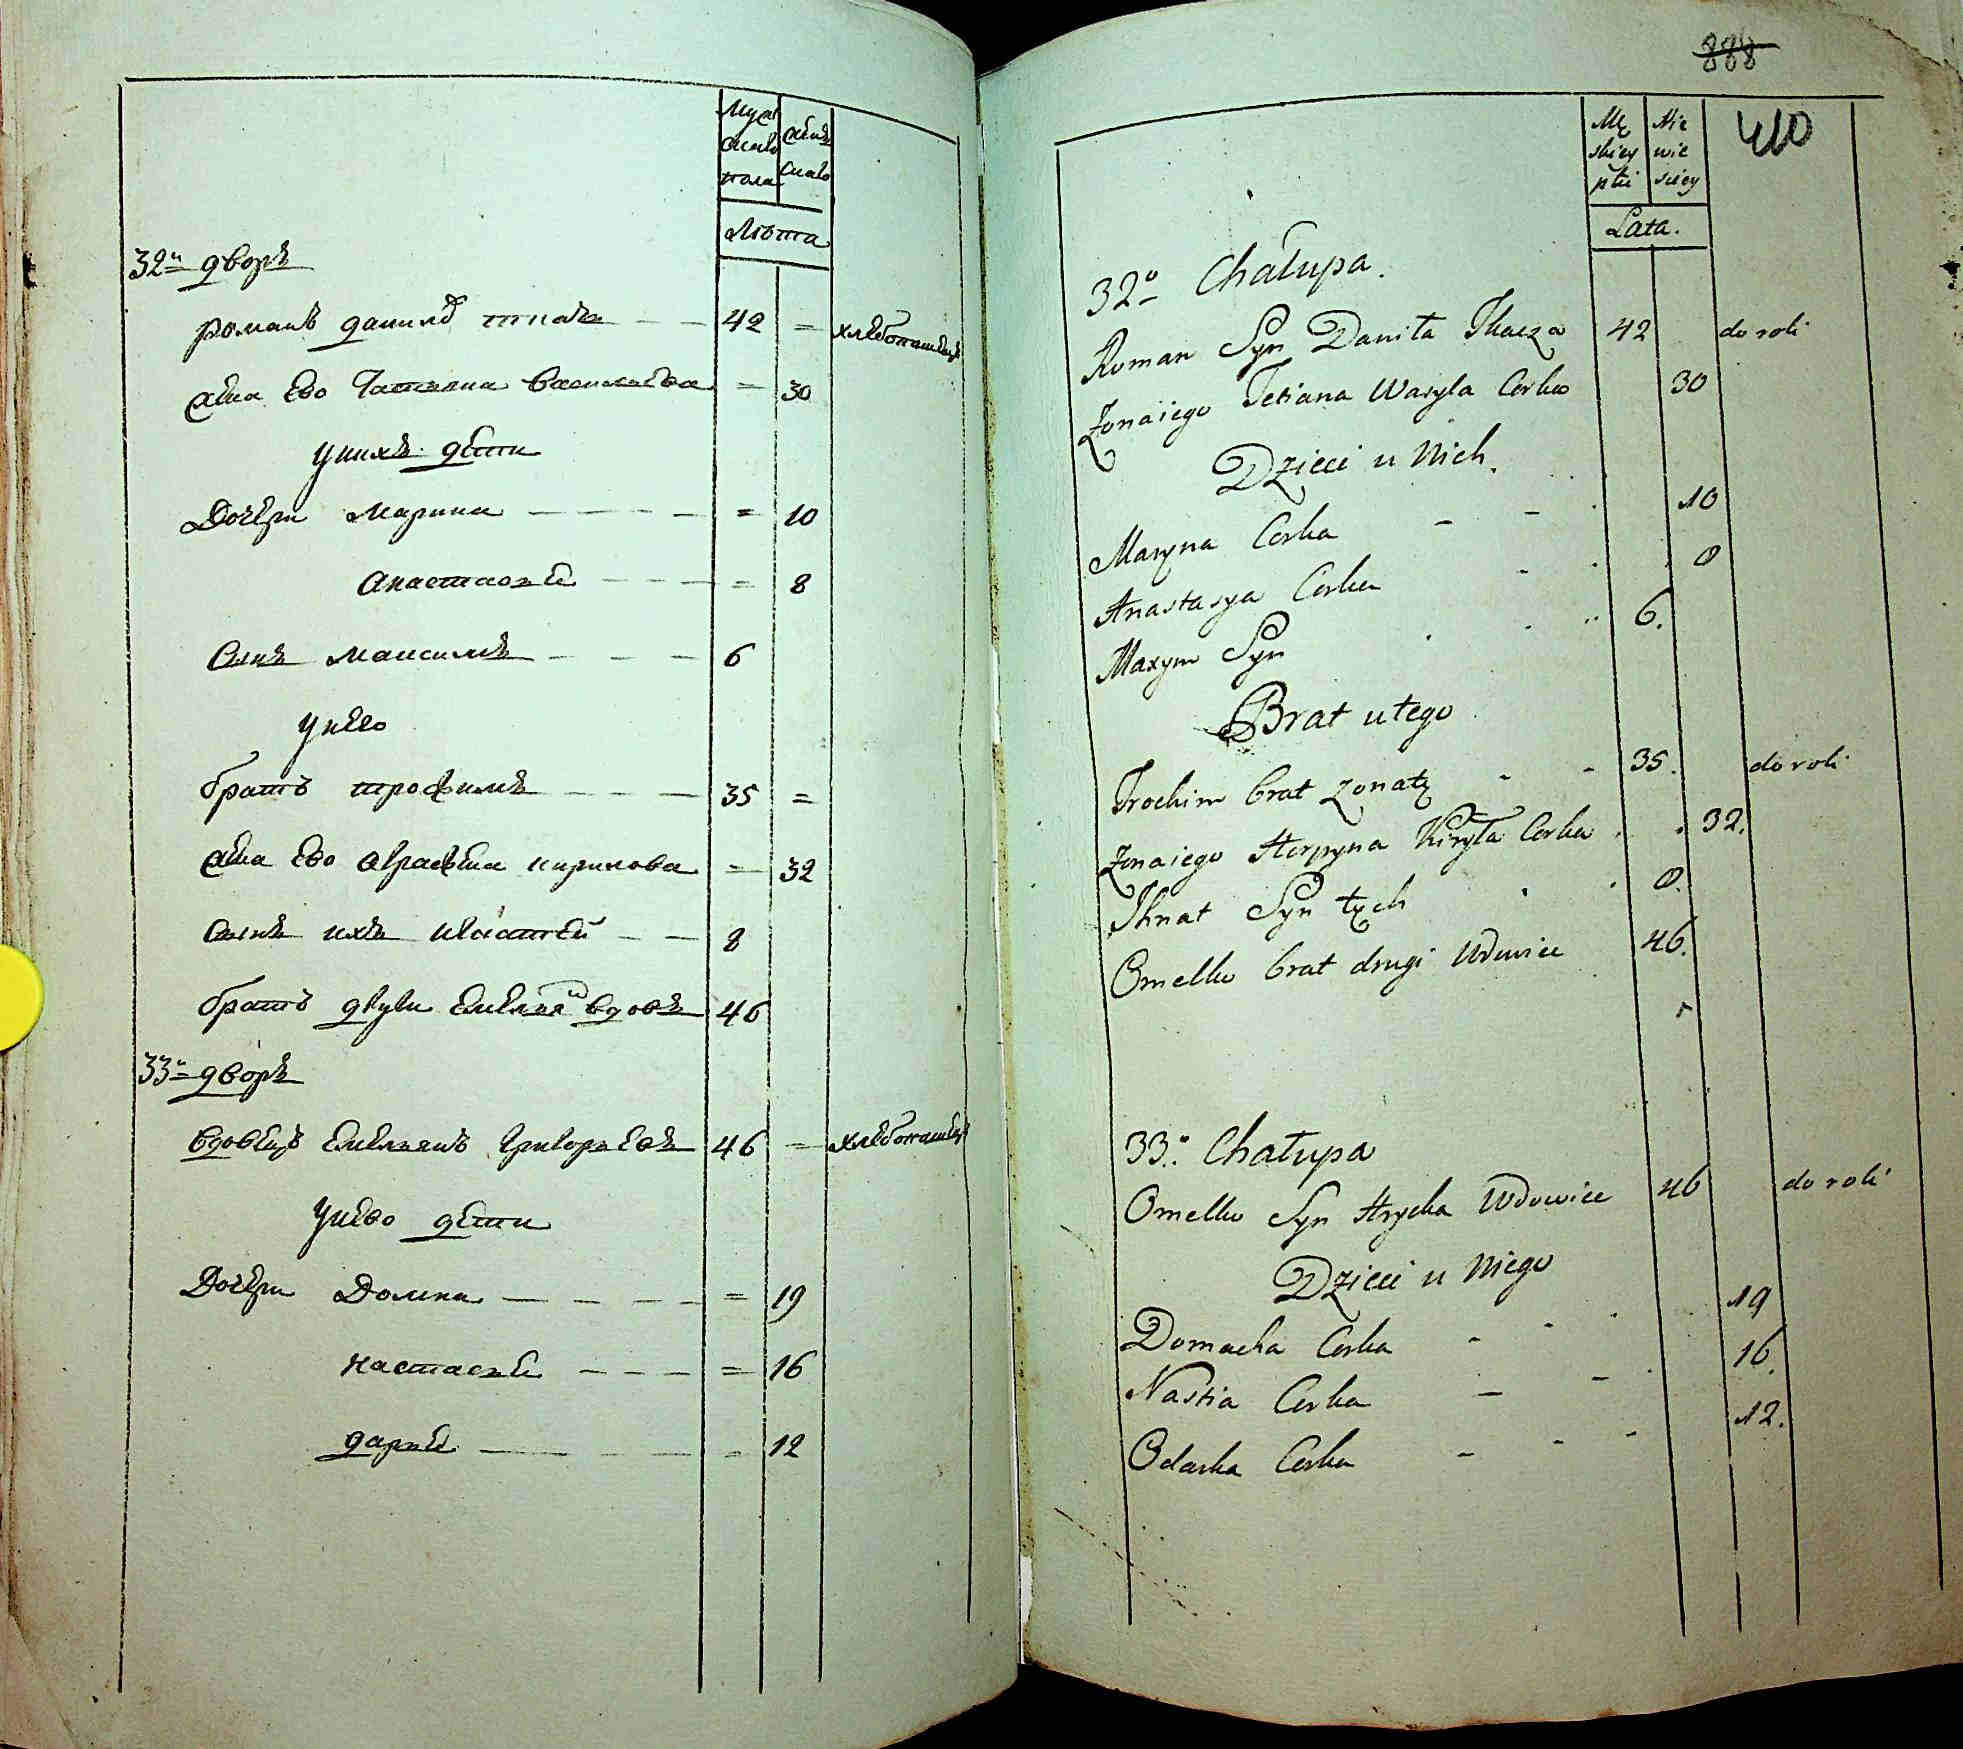 Муж
ска
пола
жѣнъ
скаго
Лѣта
32й дворъ
романъ данилов ткачъ — — 42 = хлебопашецъ
жена Ево Татьяна васильева = 30
унихъ дети
Дочери марина — — — — = 10
анастасие — — — = 8
Сынъ максимъ — — — 6
унево
братъ трофимъ — — — 35 =
жена Ево кирилова = 32
сынъ ихъ — — 8
братъ другии Емельян вдовъ 46
33й дворъ
вдовецъ Емельянъ григорьевъ 46 — хлебопашецъ
унево дети
Дочери Домна — — — — = 19
настасие — — — = 16
дарие — — — — 12
888
410
Mę
skiey
płci
Nie
wie
sciey
Lata.
32o Chałupa.
Roman Syn Daniła Tkacza 42 do roli
Zonaiego Tetiana Wasyla Corka 30
Dzieci u Nich.
Maryna Corka - - 10
Anastasya Corka - 8
Maxym Syn 6.
Brat utego
Trochim brat zonaty - - 35. do roli
Zonaiego Horpyna Kiryła Corka 32.
Ihnat Syn tych 8.
Omelko brat drugi Wdowiec 46.
33.o Chałupa
Omelko Syn Hrycka Wdowiec 46 do roli
Dzieci u Niego
Domacha Corka - - 19
Nastia Corka - - 16.
Odarka Corka - - - 12.